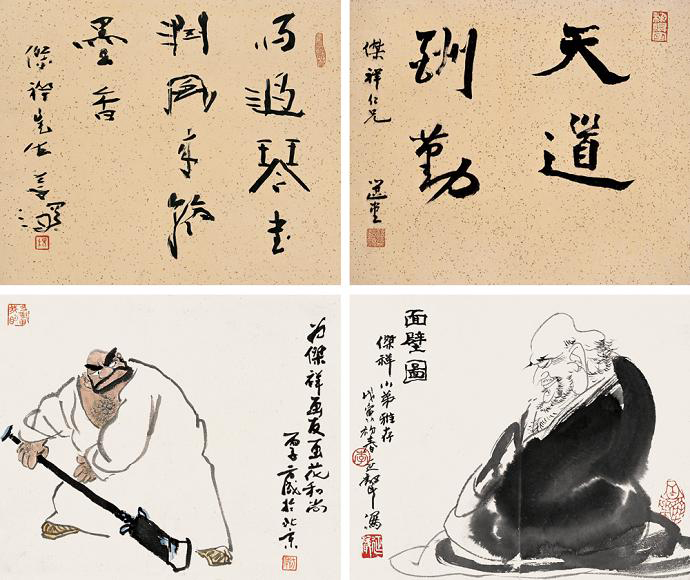 雨過琴書
潤風來翰
墨香
傑祥先生
天道
酬勤
傑祥仁兄
選堂
为傑祥画友画花和尚
丙子方成於北京
面壁圖
傑祥小弟雅存
戊寅初春